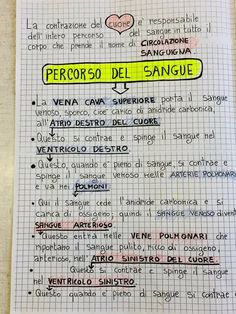 La contrazione del cuore è responsabile
dell'intero percorso del sangue in tutto il
corpo che prende il nome di CIRCOLAZIONE
SANGUIGNA.
PERCORSO DEL SANGUE
• La VENA CAVA SUPERIORE porta il sangue
venoso, sporco, cioè carico di anidride carbonica,
all'ATRIO DESTRO DEL CUORE.
• Questo si contrae e spinge il sangue nel
VENTRICOLO DESTRO.
• Questo, quando e' pieno di sangue, si contrae e
spinge il sangue nelle ARTERIE POLMONARI
e va nei POLMONI
• Qui il sangue cede l'anidride carbonica e si
carica di ossigeno; quindi il SANGUE VENOSO diventa
SANGUE ARTERIOSO
• Questo entra nelle VENE POLMONARI che
riportano il sangue pulito, ricco di ossigeno,
arterioso, nell'ATRIO SINISTRO DEL CUORE.
• Questo si contrae e spinge il sangue
nel VENTRICOLO SINISTRO.
• Questo quando e' pieno di sangue si contrae e